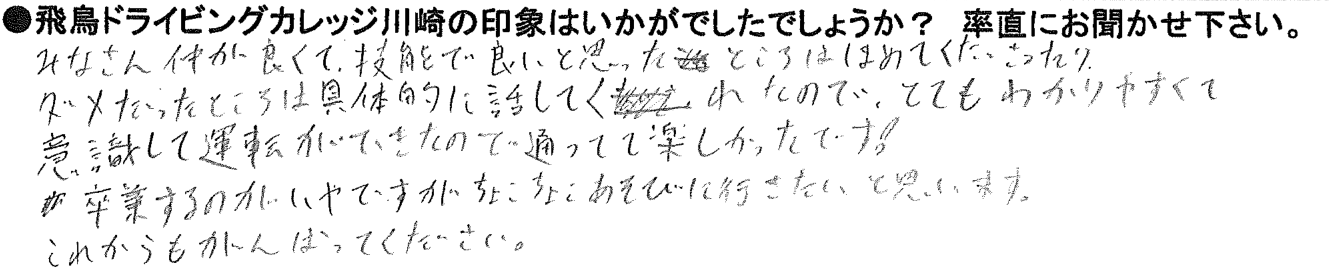 ●飛鳥ドライビングカレッジ川崎の印象はいかがでしたでしょうか？ 率直にお聞かせ下さい。
みなさん仲が良くて、技能で良いと思ったところはほめてくださったり
ダメだったところは具体的に話してくれたので、とてもわかりやすくて
意識して運転ができたので通ってて楽しかったです!
卒業するのがいやですがちょこちょこあそびに行きたいと思います。
これからもがんばってください。